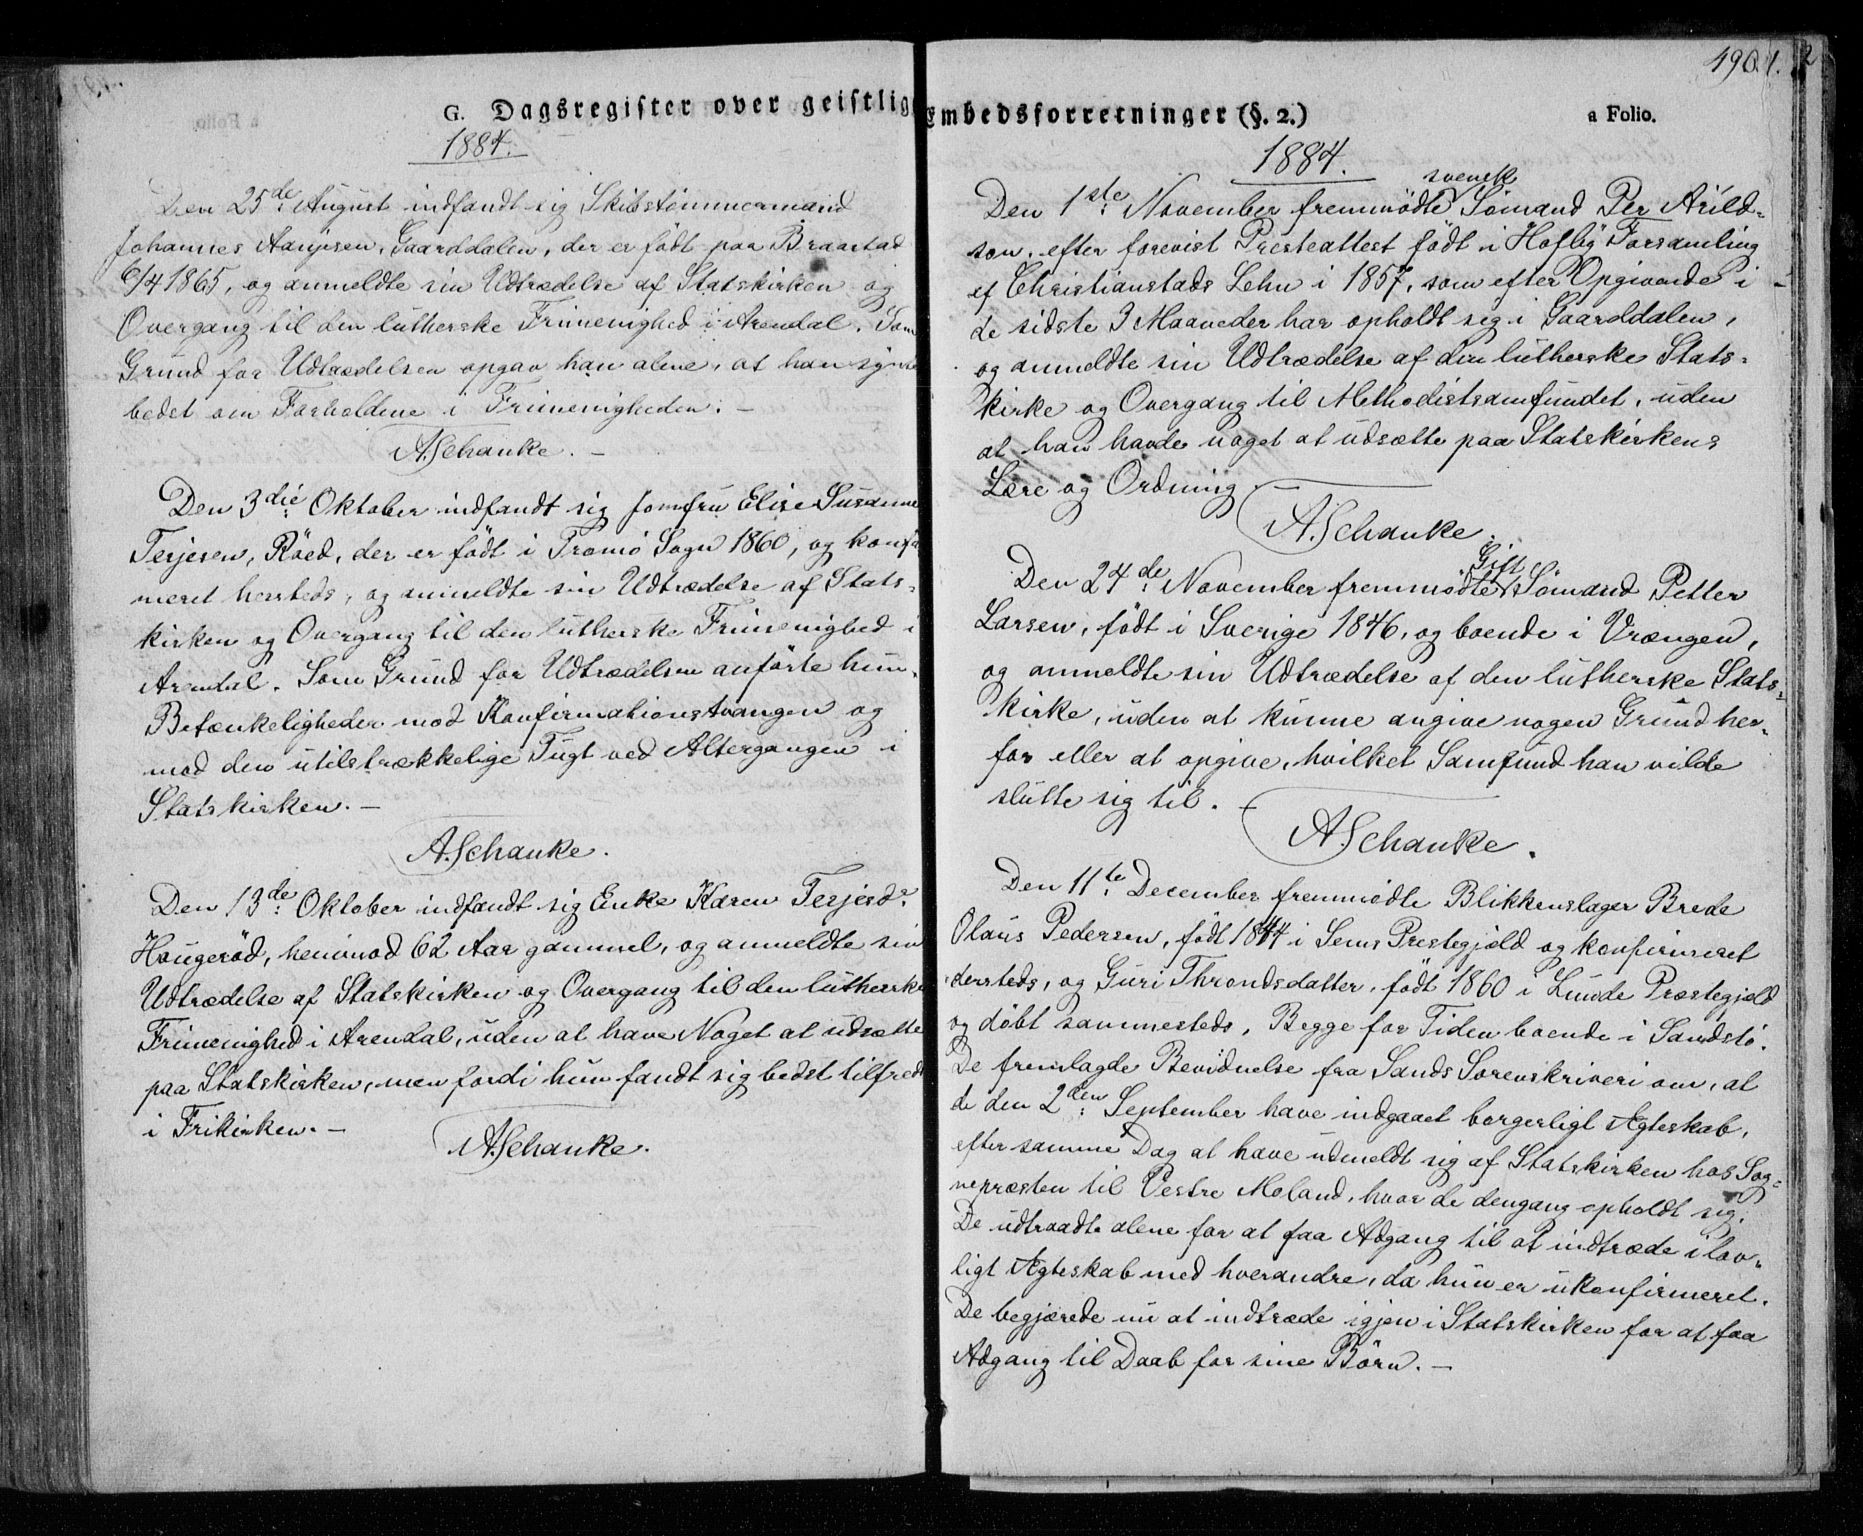 G. Dagsregister over geistlige
1884.
Den 25de August indfandt sig Skibstømmermand
Johannes Aanjesen, Gaarddalen, der er født paa Braastad
6/4 1865, og anmeldte sin Udtrædelse af Statskirken og
Overgang til den lutherske Frimenighed i Arendal. Som
Grund for Udtrædelsen opgav han alene, at han syntes
bedst om Forholdene i Frimenigheden. –
A. Schanke. –
Den 3die Oktober indfandt sig Jomfru Elise Susanne
Terjesen, Röed, der er født i Tromö Sogn 1860, og konfir
meret hersteds, og anmeldte sin Udtrædelse af Stats-
kirken og Overgang til den lutherske Frimenighed i
Arendal. Som Grund for Udtrædelsen anförte hun
Betænkeligheder mod Konfirmationstvangen og
mod den utilstrækkelige Tugt ved Altergangen i
Statskirken. –
A. Schanke.
Den 13de Oktober indfandt sig Enke Karen Terjesdr
Haugeröd, henimod 62 Aar gammel, og anmeldte sin
Udtrædelse af Statskirken og Overgang til den lutherske
Frimenighed i Arendal, uden at have Noget at udsætte
paa Statskirken, men fordi hun fandt sig bedst tilfreds
i Frikirken. –
A. Schanke.
490.
Embedsforretninger (§. 2.)
a Folio.
1884.
svensk
Den 1ste November fremmödte Sömand Per Arild-
son, efter forevist Presteattest født i Hofby Forsamling
af Christianstads Lehn i 1857, som efter Opgivende i
de sidste 3 Maaneder har opholdt sig i Gaarddalen,
og anmeldte sin Udtrædelse af den lutherske Stats-
kirke og Overgang til Methodistsamfundet, uden
at han havde noget at udsætte paa Statskirkens
Lære og Ordning. –
A. Schanke.
Gift
Den 24de November fremmödte Sömand Petter
Larsen, født i Sverige 1846, og boende i Vrængen,
og anmeldte sin Udtrædelse af den lutherske Stats-
kirke, uden at kunne angive nogen Grund her-
for eller at opgive, hvilket Samfund han vilde
slutte sig til. –
A. Schanke.
Den 11te December fremmödte Blikkenslager Brede
Olaus Pedersen, født 1844 i Sems Prestegjeld og konfirmeret
dersteds, og Guri Throndsdatter, født 1860 i Lunde Præstegjeld
og döbt sammesteds, Begge for Tiden boende i Sandstö.
De fremlagde Bevidnelse fra Sands Sorenskriveri om, at
de den 2den September have indgaaet borgerligt Ægteskab,
efter samme Dag at have udmeldt sig af Statskirken hos Sog-
nepræsten til Vestre Moland, hvor de dengang opholdt sig.
De udtraadte alene for at faa Adgang til at indtræde i lov-
ligt Ægteskab med hverandre, da hun er ukonfirmeret.
De begjærede nu at indtræde igjen i Statskirken for at faa
Adgang til Daab for sine Börn. –